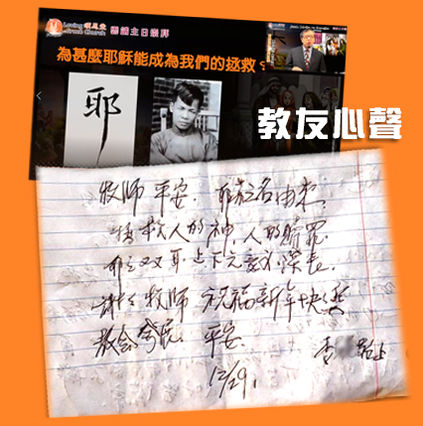 Loving
Grace Church
雲端主日崇拜
為甚麼耶穌能成為我們的拯救？
耶
教友心聲
牧师 平安. 耶稣名由来,
拯救人的神, 人的赎罪.
耶 双耳 上下
谢谢 牧师 祝福新年快乐
教会 平安.
李 上
12/29.